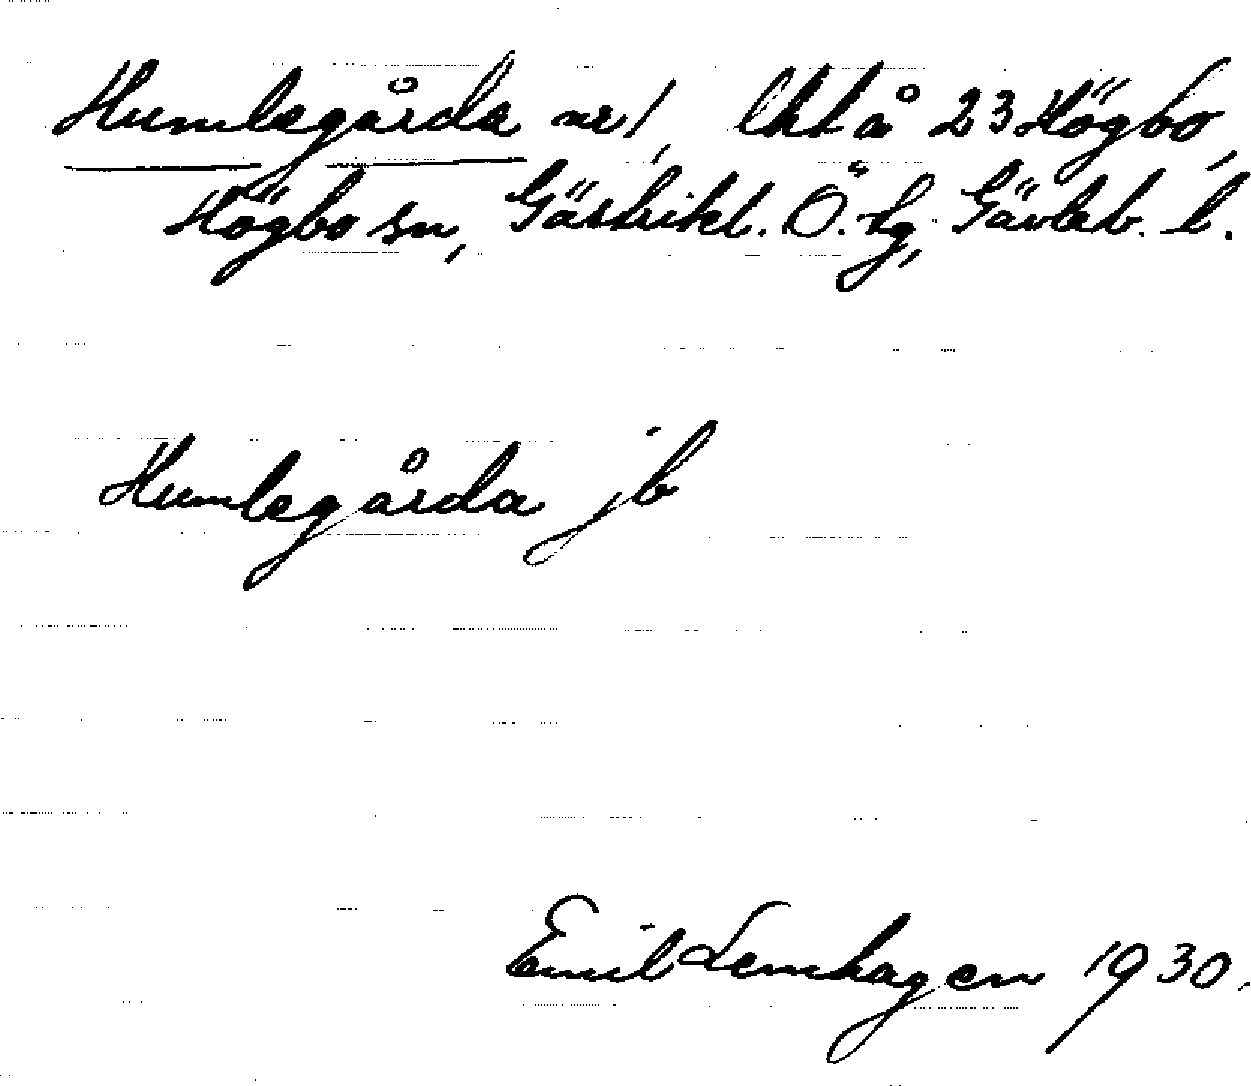 Humlegårda nr 1, lht å 23 Högbo,
Högbo sn, Gästrikl. Ö. tg, Gävleb. l.
Humlegårda jb
Emil Lemhagen 1930.